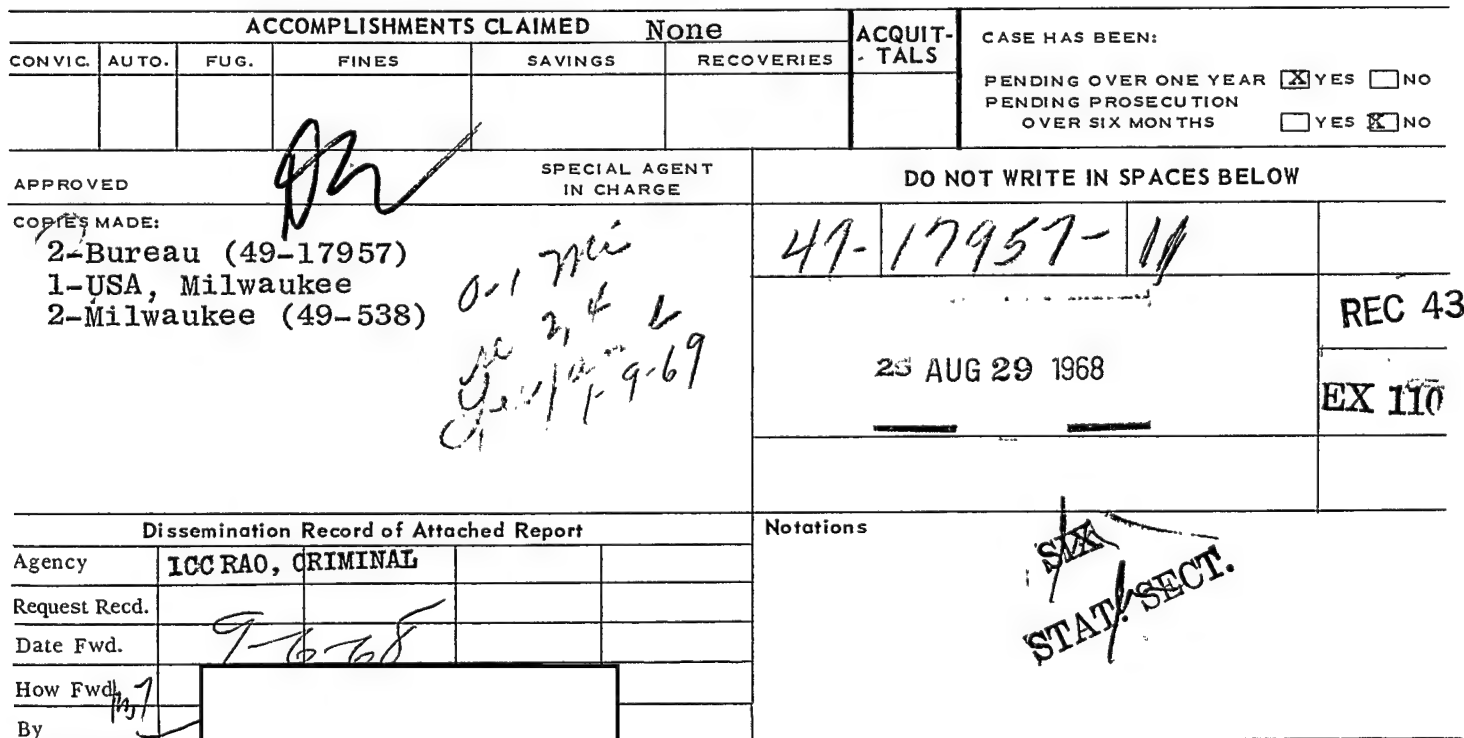 ACCOMPLISHMENTS CLAIMED None
ACQUIT-TALS
CASE HAS BEEN:
CONVIC. AUTO. FUG. FINES SAVINGS RECOVERIES
PENDING OVER ONE YEAR X YES NO
PENDING PROSECUTION
OVER SIX MONTHS YES X NO
APPROVED
SPECIAL AGENT
IN CHARGE
DO NOT WRITE IN SPACES BELOW
COPIES MADE:
2-Bureau (49-17957)
1-USA, Milwaukee
2-Milwaukee (49-538)
0-1
1-9-69
49-17957-11
REC 43
25 AUG 29 1968
EX 110
Dissemination Record of Attached Report
Agency ICC RAO, CRIMINAL
Request Recd.
Date Fwd. 9-6-68
How Fwd.
By
Notations
SIX
STAT. SECT.